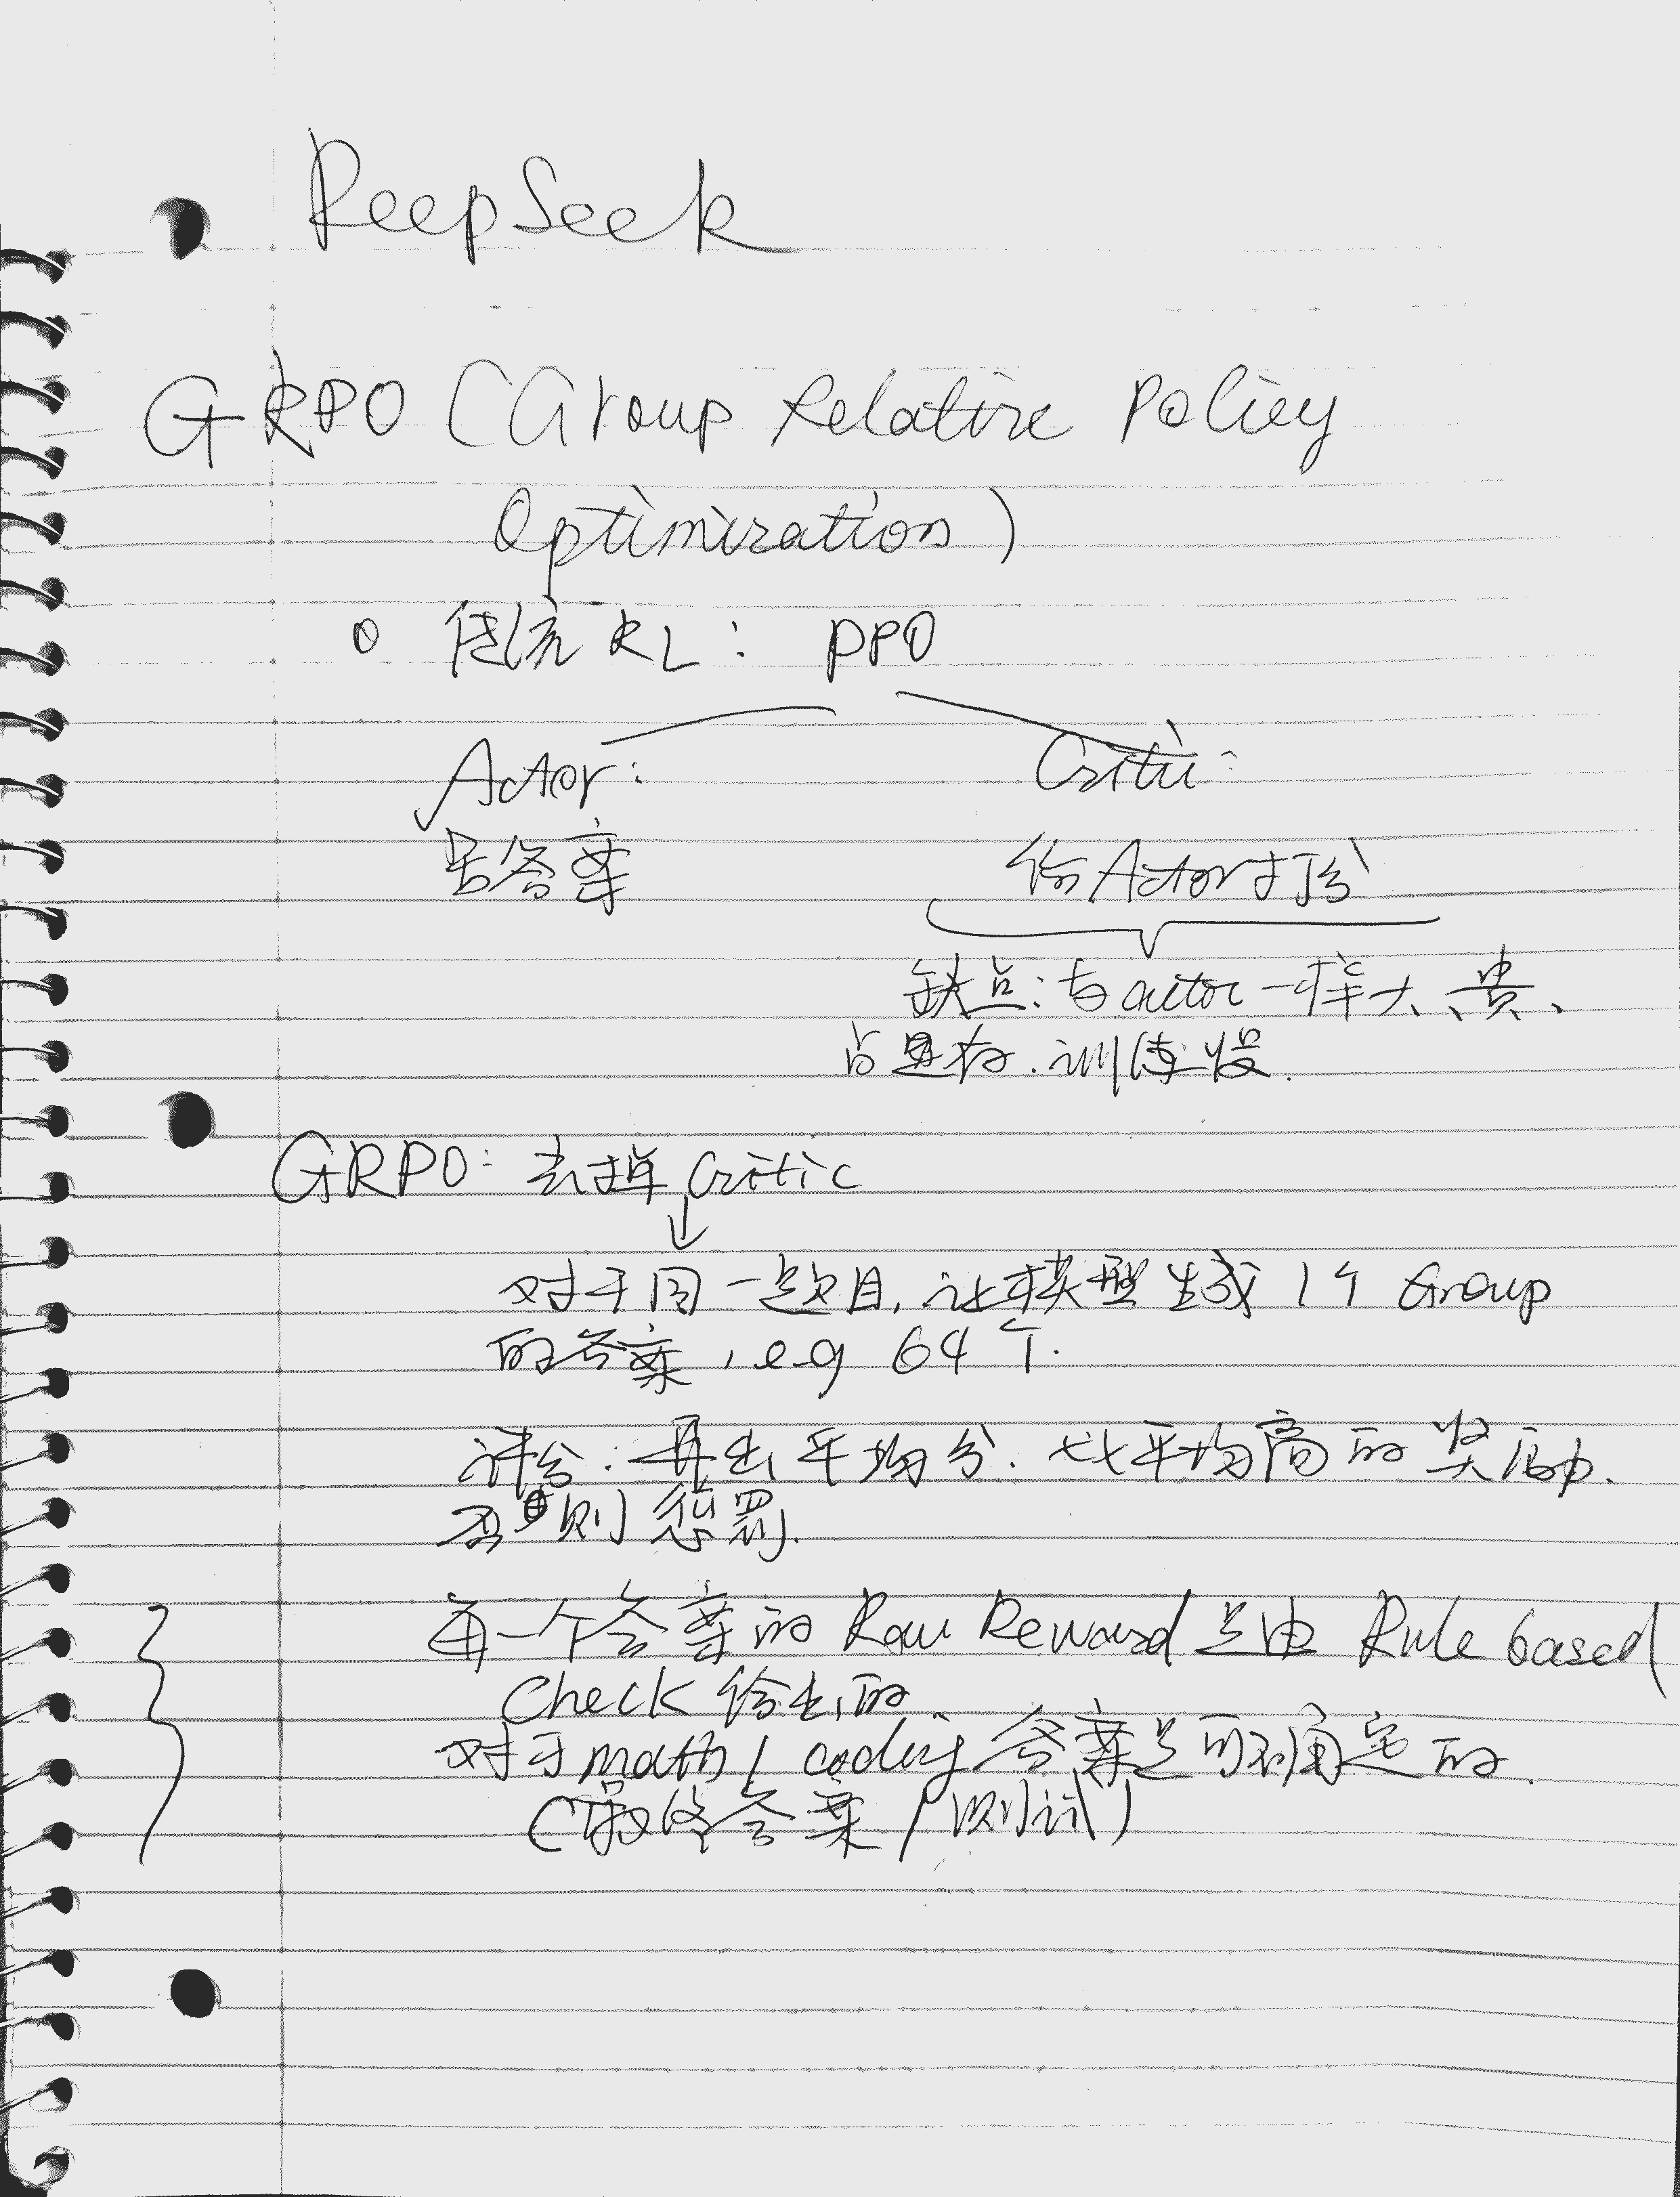 DeepSeek
GRPO (Group Relative Policy
Optimization)
传统 RL: PPO
Actor: Critic:
写答案 给Actor打分
缺点:与actor一样大、贵、
占显存.训练慢.
GRPO: 去掉 Critic
对于同一题目,让模型生成 1个 Group
的答案, e.g 64个.
评分:算出平均分.比平均高的奖励.
否则惩罚.
每一个答案的 Raw Reward 是由 Rule based
Check 给出的
对于math / coding 答案是可确定的.
(最终答案/测试)